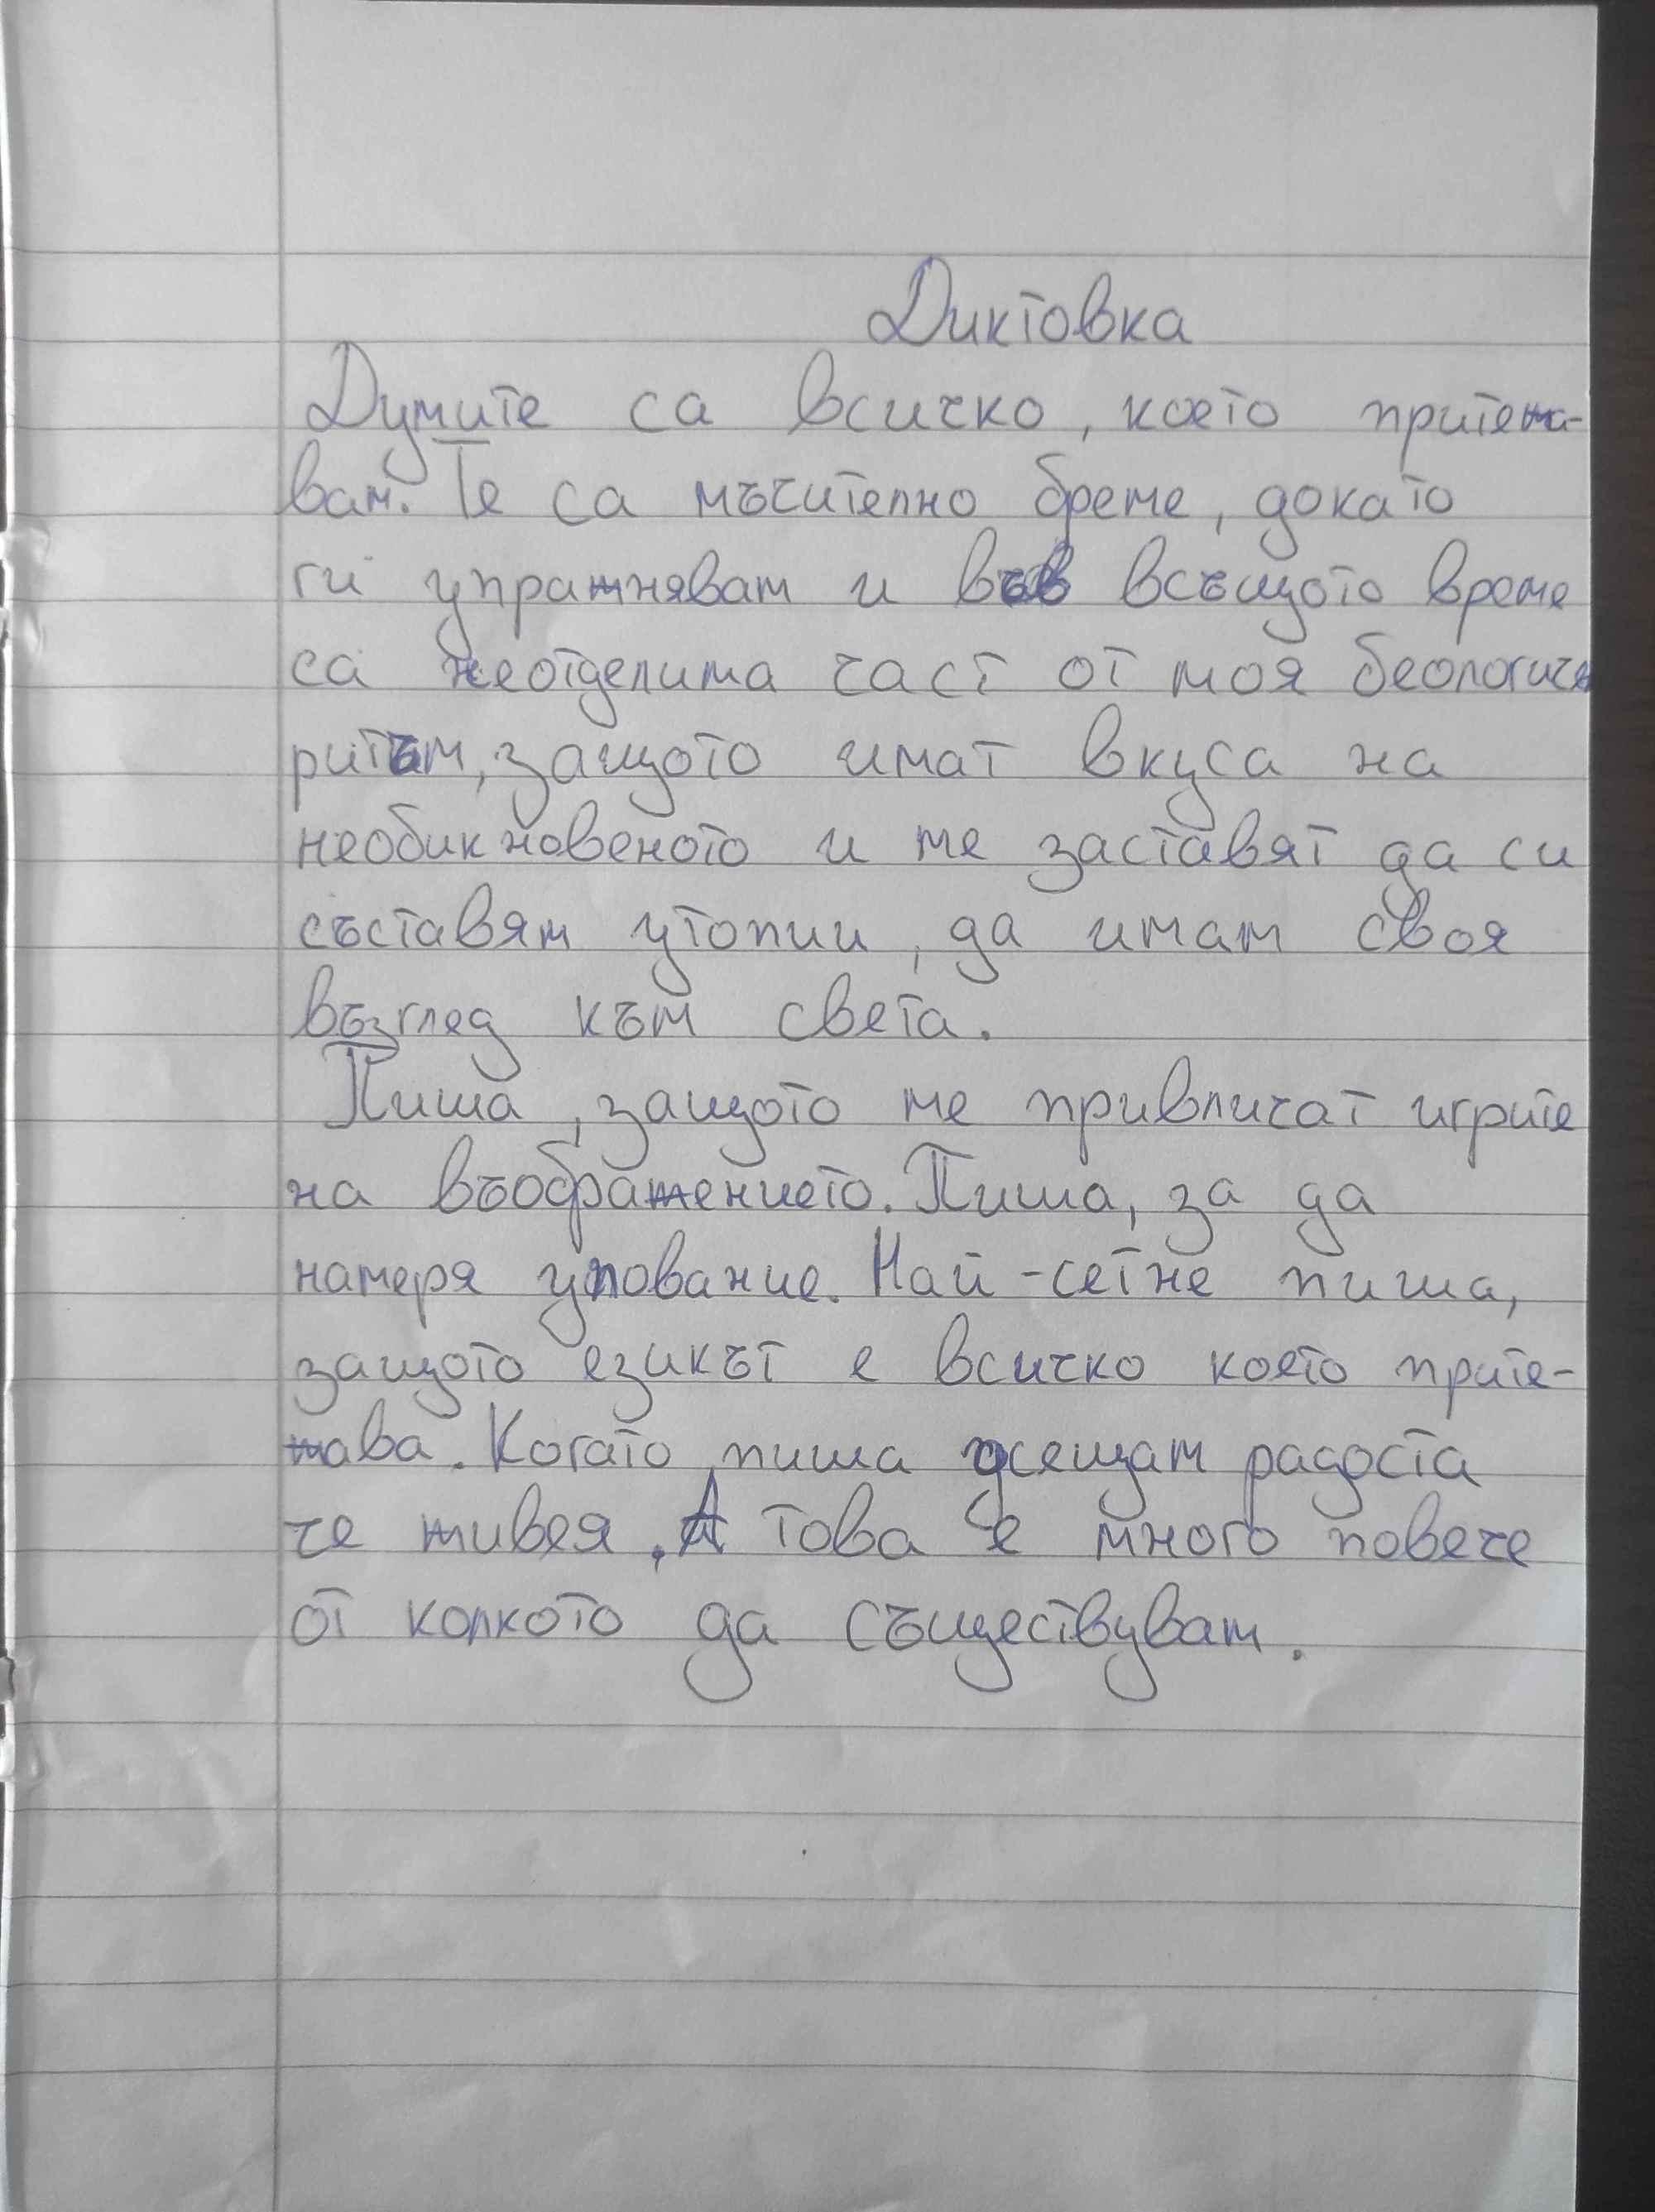 Диктовка
Думите са всичко, което притежа-
вам. Те са мъчително бреме, докато
ги упражнявам и във всъщото време
са неотделима част от моя беологичен
ритъм, защото имат вкуса на
необикновеното и ме заставят да си
съставям утопии, да имам своя
възглед към света.
Пиша, защото ме привличат игрите
на въображението. Пиша, за да
намеря упование. Най-сетне пиша,
защото езикът е всичко което прите-
жава. Когато, пиша осещам радоста
че живея. А това е много повече
от колкото да съществувам.